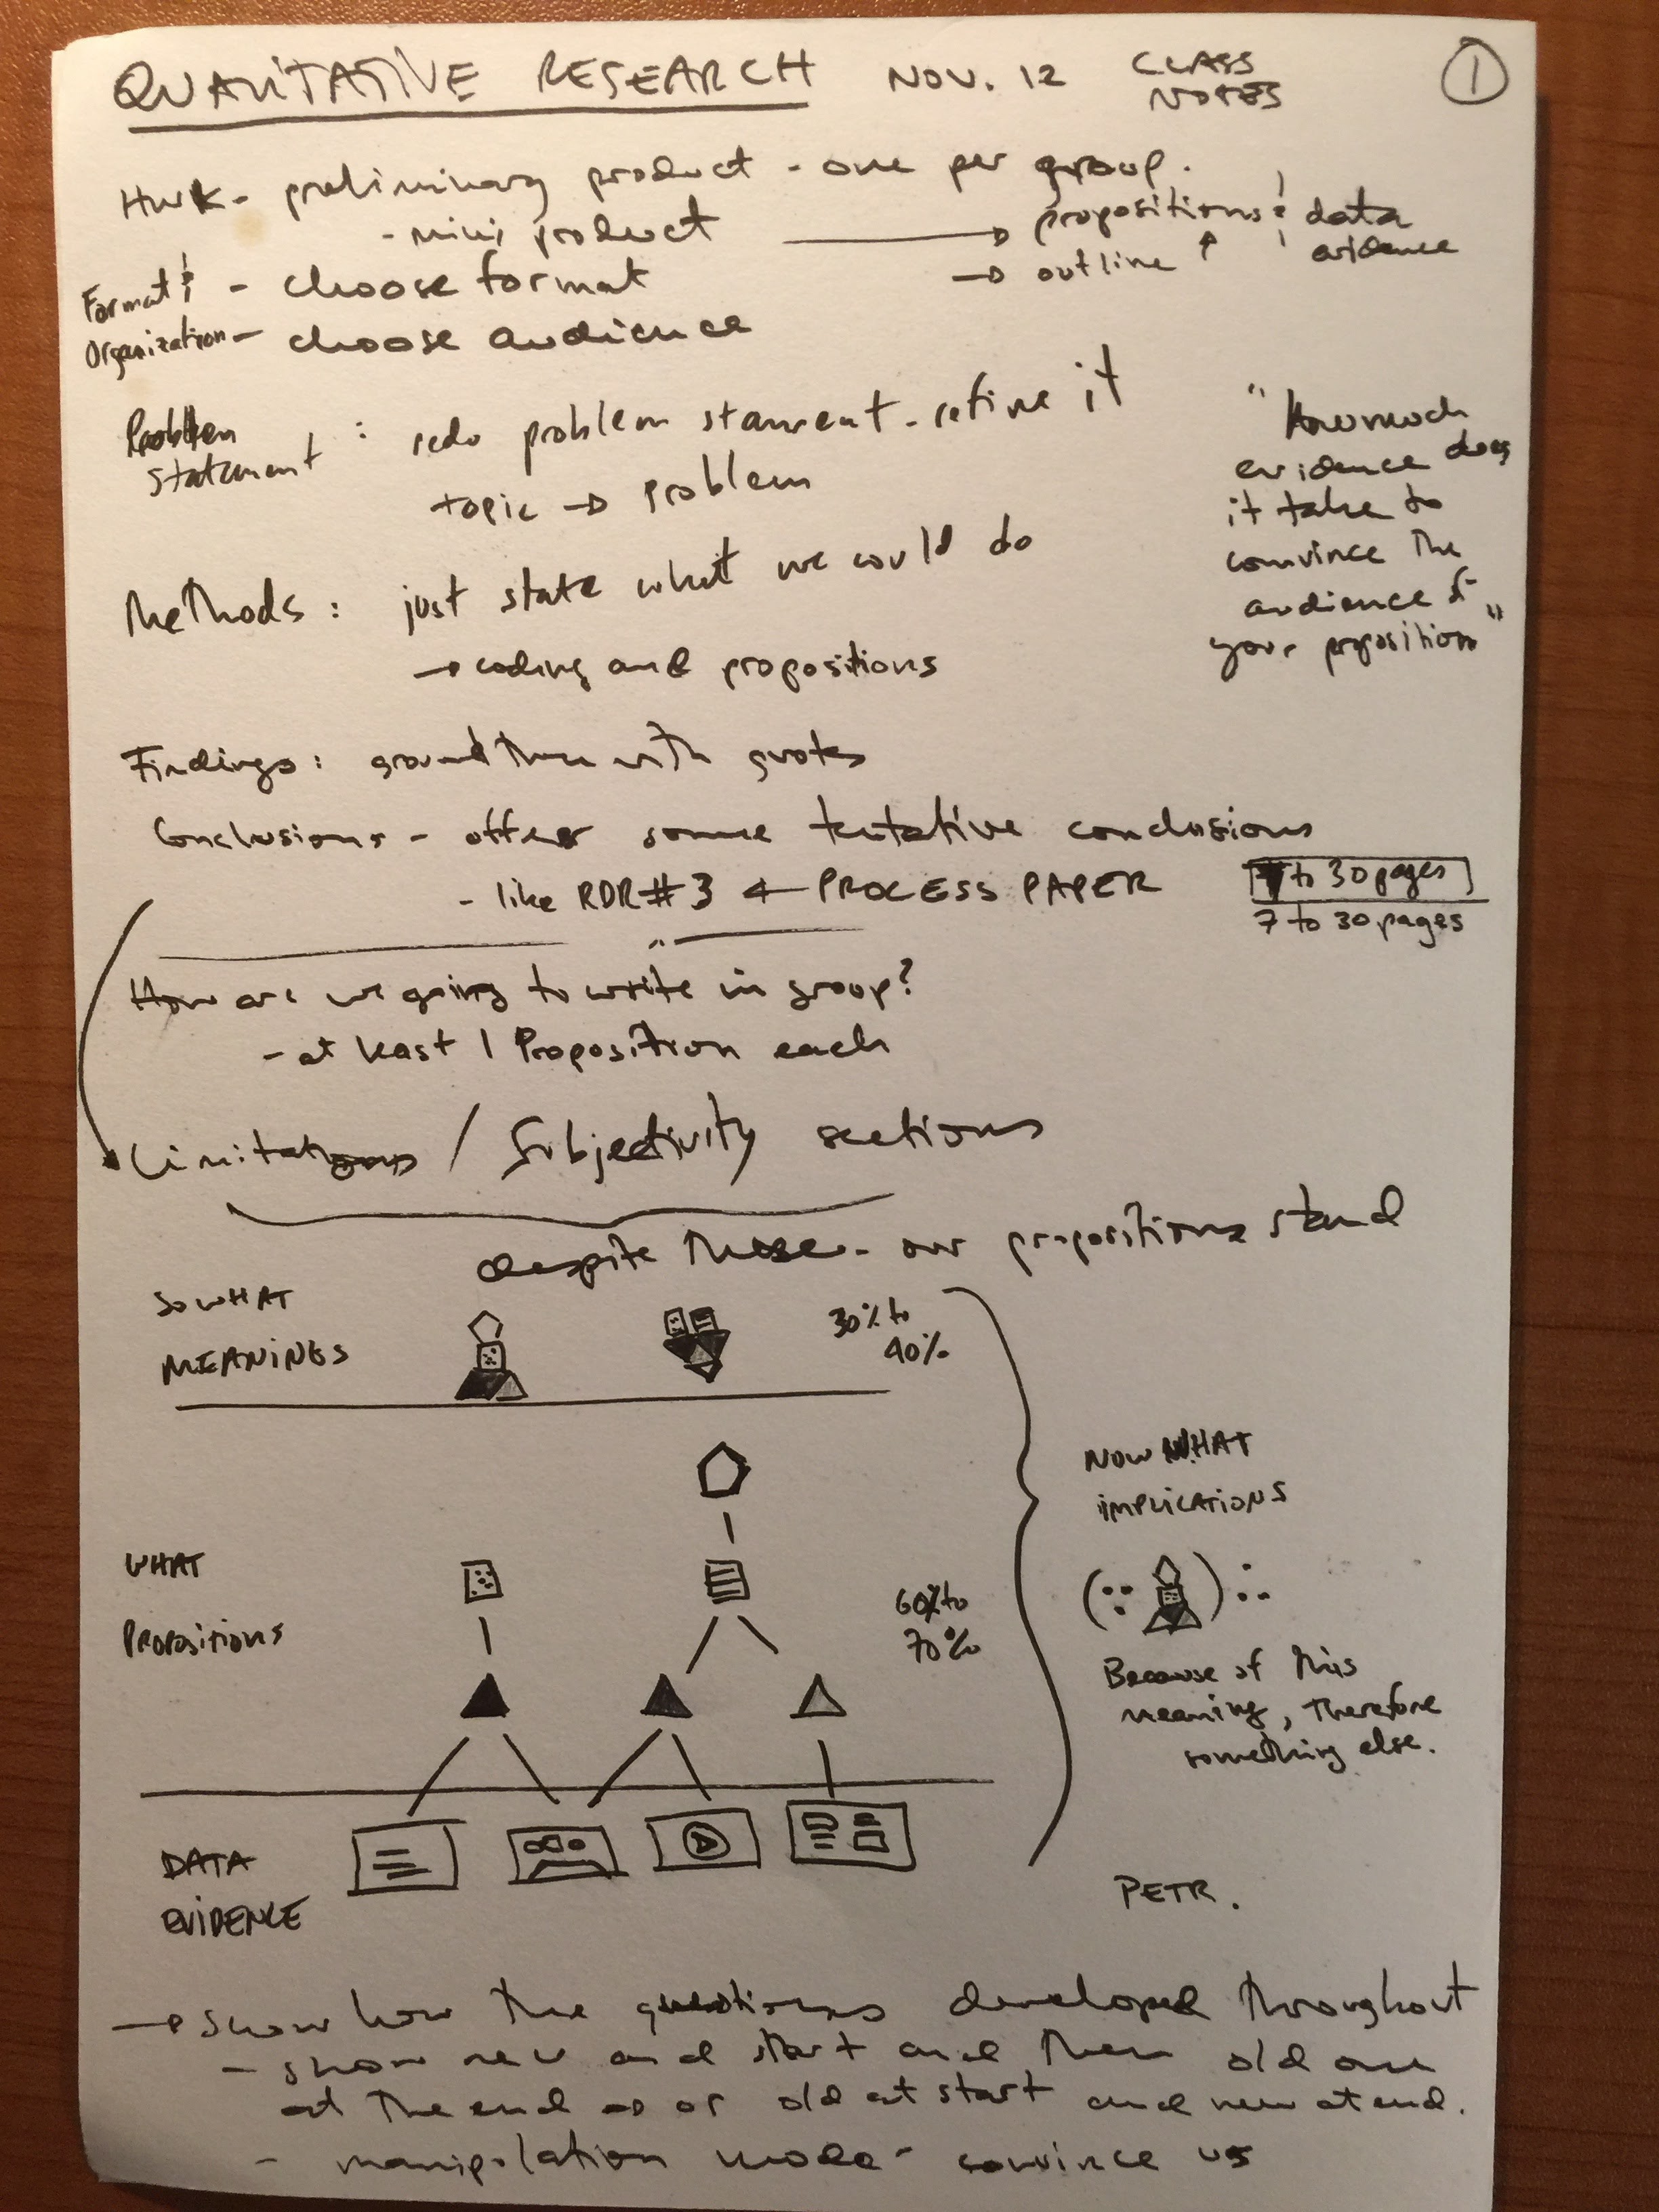 QUALITATIVE RESEARCH NOV. 12 CLASS NOTES 1
Hwk - preliminary product - one per group.
- mini product → propositions & data evidence
→ outline ↑
Format &
Organization
- choose format
- choose audience
Problem
statement : redo problem stament - refine it
topic → problem
"How much
evidence does
it take to
convince the
audience of
your proposition"
Methods : just state what we would do
→ coding and propositions
Findings : ground them with quotes
Conclusions - offer some tentative conclusions
- like RDR #3 ← PROCESS PAPER
to 30 pages
7 to 30 pages
How are we going to write in group?
- at least 1 Proposition each
Limitations / Subjectivity sections
despite these - our propositions stand
SO WHAT
MEANINGS
30% to
40%
WHAT
PROPOSITIONS
60% to
70%
NOW WHAT
IMPLICATIONS
Because of this
meaning, therefore
something else.
DATA
EVIDENCE
PETR.
→ show how the questions developed throughout
- show new and start and then old one
at the end → or old at start and new at end.
- manipulation mode - convince us